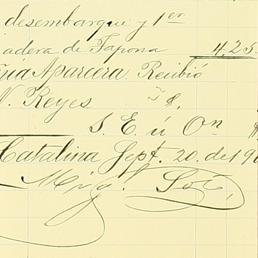 desembarque y 1er
adera de Tapona 4.25.
Aparcera Recibió
N. Reyes $,
S. E. ú On $
Catalina Sept. 20. de 19